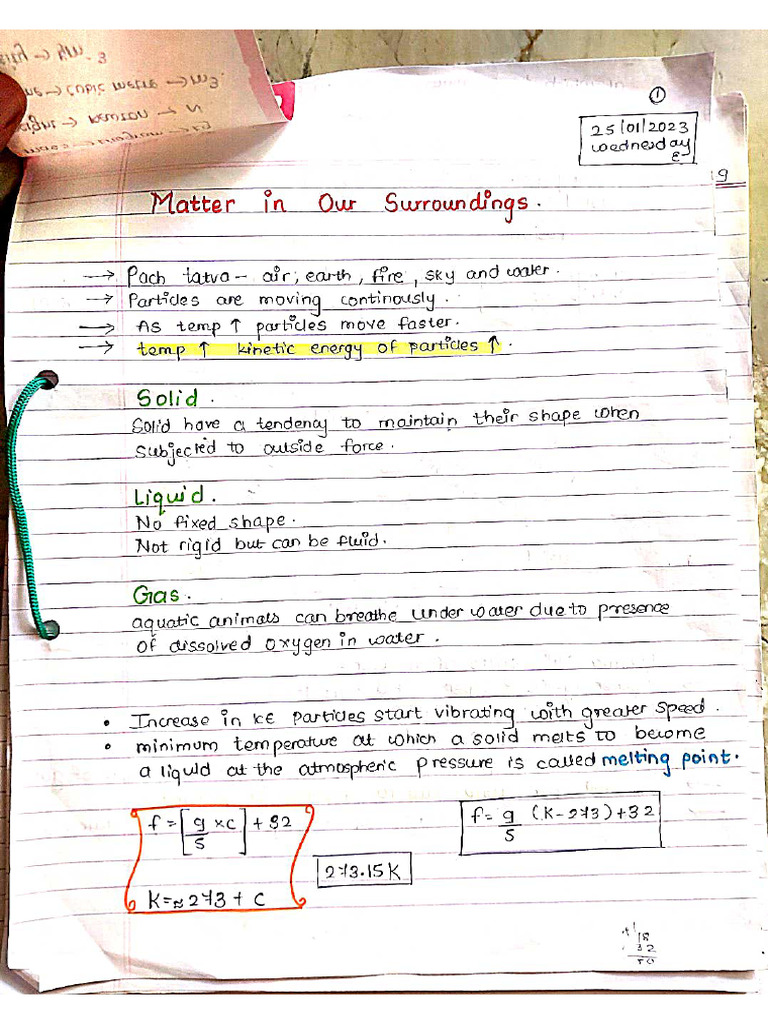 1
25/01/2023
Wednesday
9
Matter in Our Surroundings.
→ Pach tatva - air, earth, fire, sky and water.
→ Particles are moving continously.
→ As temp ↑ particles move faster.
→ temp ↑ kinetic energy of particles ↑.
Solid.
Solid have a tendency to maintain their shape when
subjected to outside force.
Liquid.
No fixed shape.
Not rigid but can be fluid.
Gas.
aquatic animals can breathe under water due to presence
of dissolved oxygen in water.
• Increase in KE particles start vibrating with greater speed.
• minimum temperature at which a solid melts to become
a liquid at the atmospheric pressure is called melting point.
f = [9/5 × c] + 32
f = 9/5 (K - 273) + 32
273.15K
K = ≈ 273 + C
18
32
50